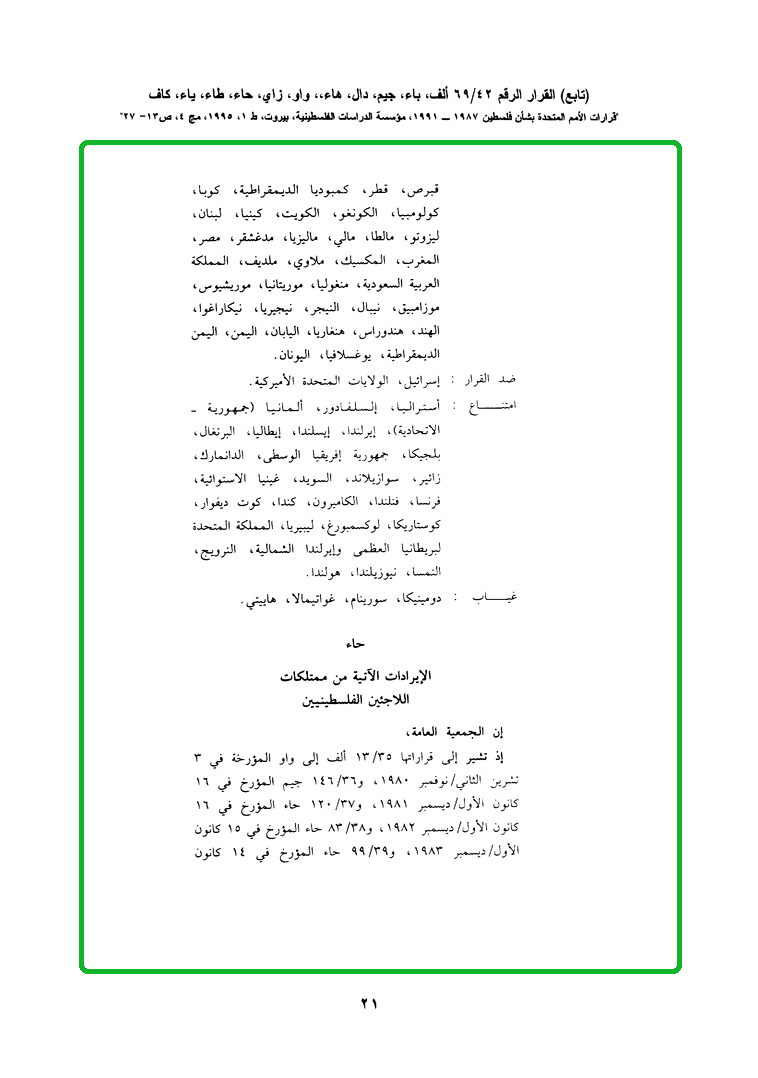 (تابع) القرار الرقم ٦٩/٤٢ ألف، باء، جيم، دال، هاء،، واو، زاي، حاء، طاء، ياء، كاف
"قرارات الأمم المتحدة بشأن فلسطين ١٩٨٧ ــ ١٩٩١، مؤسسة الدراسات الفلسطينية، بيروت، ط ١، ١٩٩٥، مج ٤، ص١٣- ٢٧"
قبرص، قطر، كمبوديا الديمقراطية، كوبا،
كولومبيا، الكونغو، الكويت، كينيا، لبنان،
ليزوتو، مالطا، مالي، ماليزيا، مدغشقر، مصر،
المغرب، المكسيك، ملاوي، ملديف، المملكة
العربية السعودية، منغوليا، موريتانيا، موريشيوس،
موزامبيق، نيبال، النيجر، نيجيريا، نيكاراغوا،
الهند، هندوراس، هنغاريا، اليابان، اليمن، اليمن
الديمقراطية، يوغسلافيا، اليونان.
ضد القرار : إسرائيل، الولايات المتحدة الأميركية.
امتنـــــاع : أستراليا، إلسلفادور، ألمانيا (جمهورية ــ
الاتحادية)، إيرلندا، إيسلندا، إيطاليا، البرتغال،
بلجيكا، جمهورية إفريقيا الوسطى، الدانمارك،
زائير، سوازيلاند، السويد، غينيا الاستوائية،
فرنسا، فنلندا، الكاميرون، كندا، كوت ديفوار،
كوستاريكا، لوكسمبورغ، ليبيريا، المملكة المتحدة
لبريطانيا العظمى وإيرلندا الشمالية، النرويج،
النمسا، نيوزيلندا، هولندا.
غيـــــاب : دومينيكا، سورينام، غواتيمالا، هاييتي.
حاء
الإيرادات الآتية من ممتلكات
اللاجئين الفلسطينيين
إن الجمعية العامة،
إذ تشير إلى قراراتها ١٣/٣٥ ألف إلى واو المؤرخة في ٣
تشرين الثاني/نوفمبر ١٩٨٠، و١٤٦/٣٦ جيم المؤرخ في ١٦
كانون الأول/ديسمبر ١٩٨١، و١٢٠/٣٧ حاء المؤرخ في ١٦
كانون الأول/ديسمبر ١٩٨٢، و٨٣/٣٨ حاء المؤرخ في ١٥ كانون
الأول/ديسمبر ١٩٨٣، و٩٩/٣٩ حاء المؤرخ في ١٤ كانون
٢١